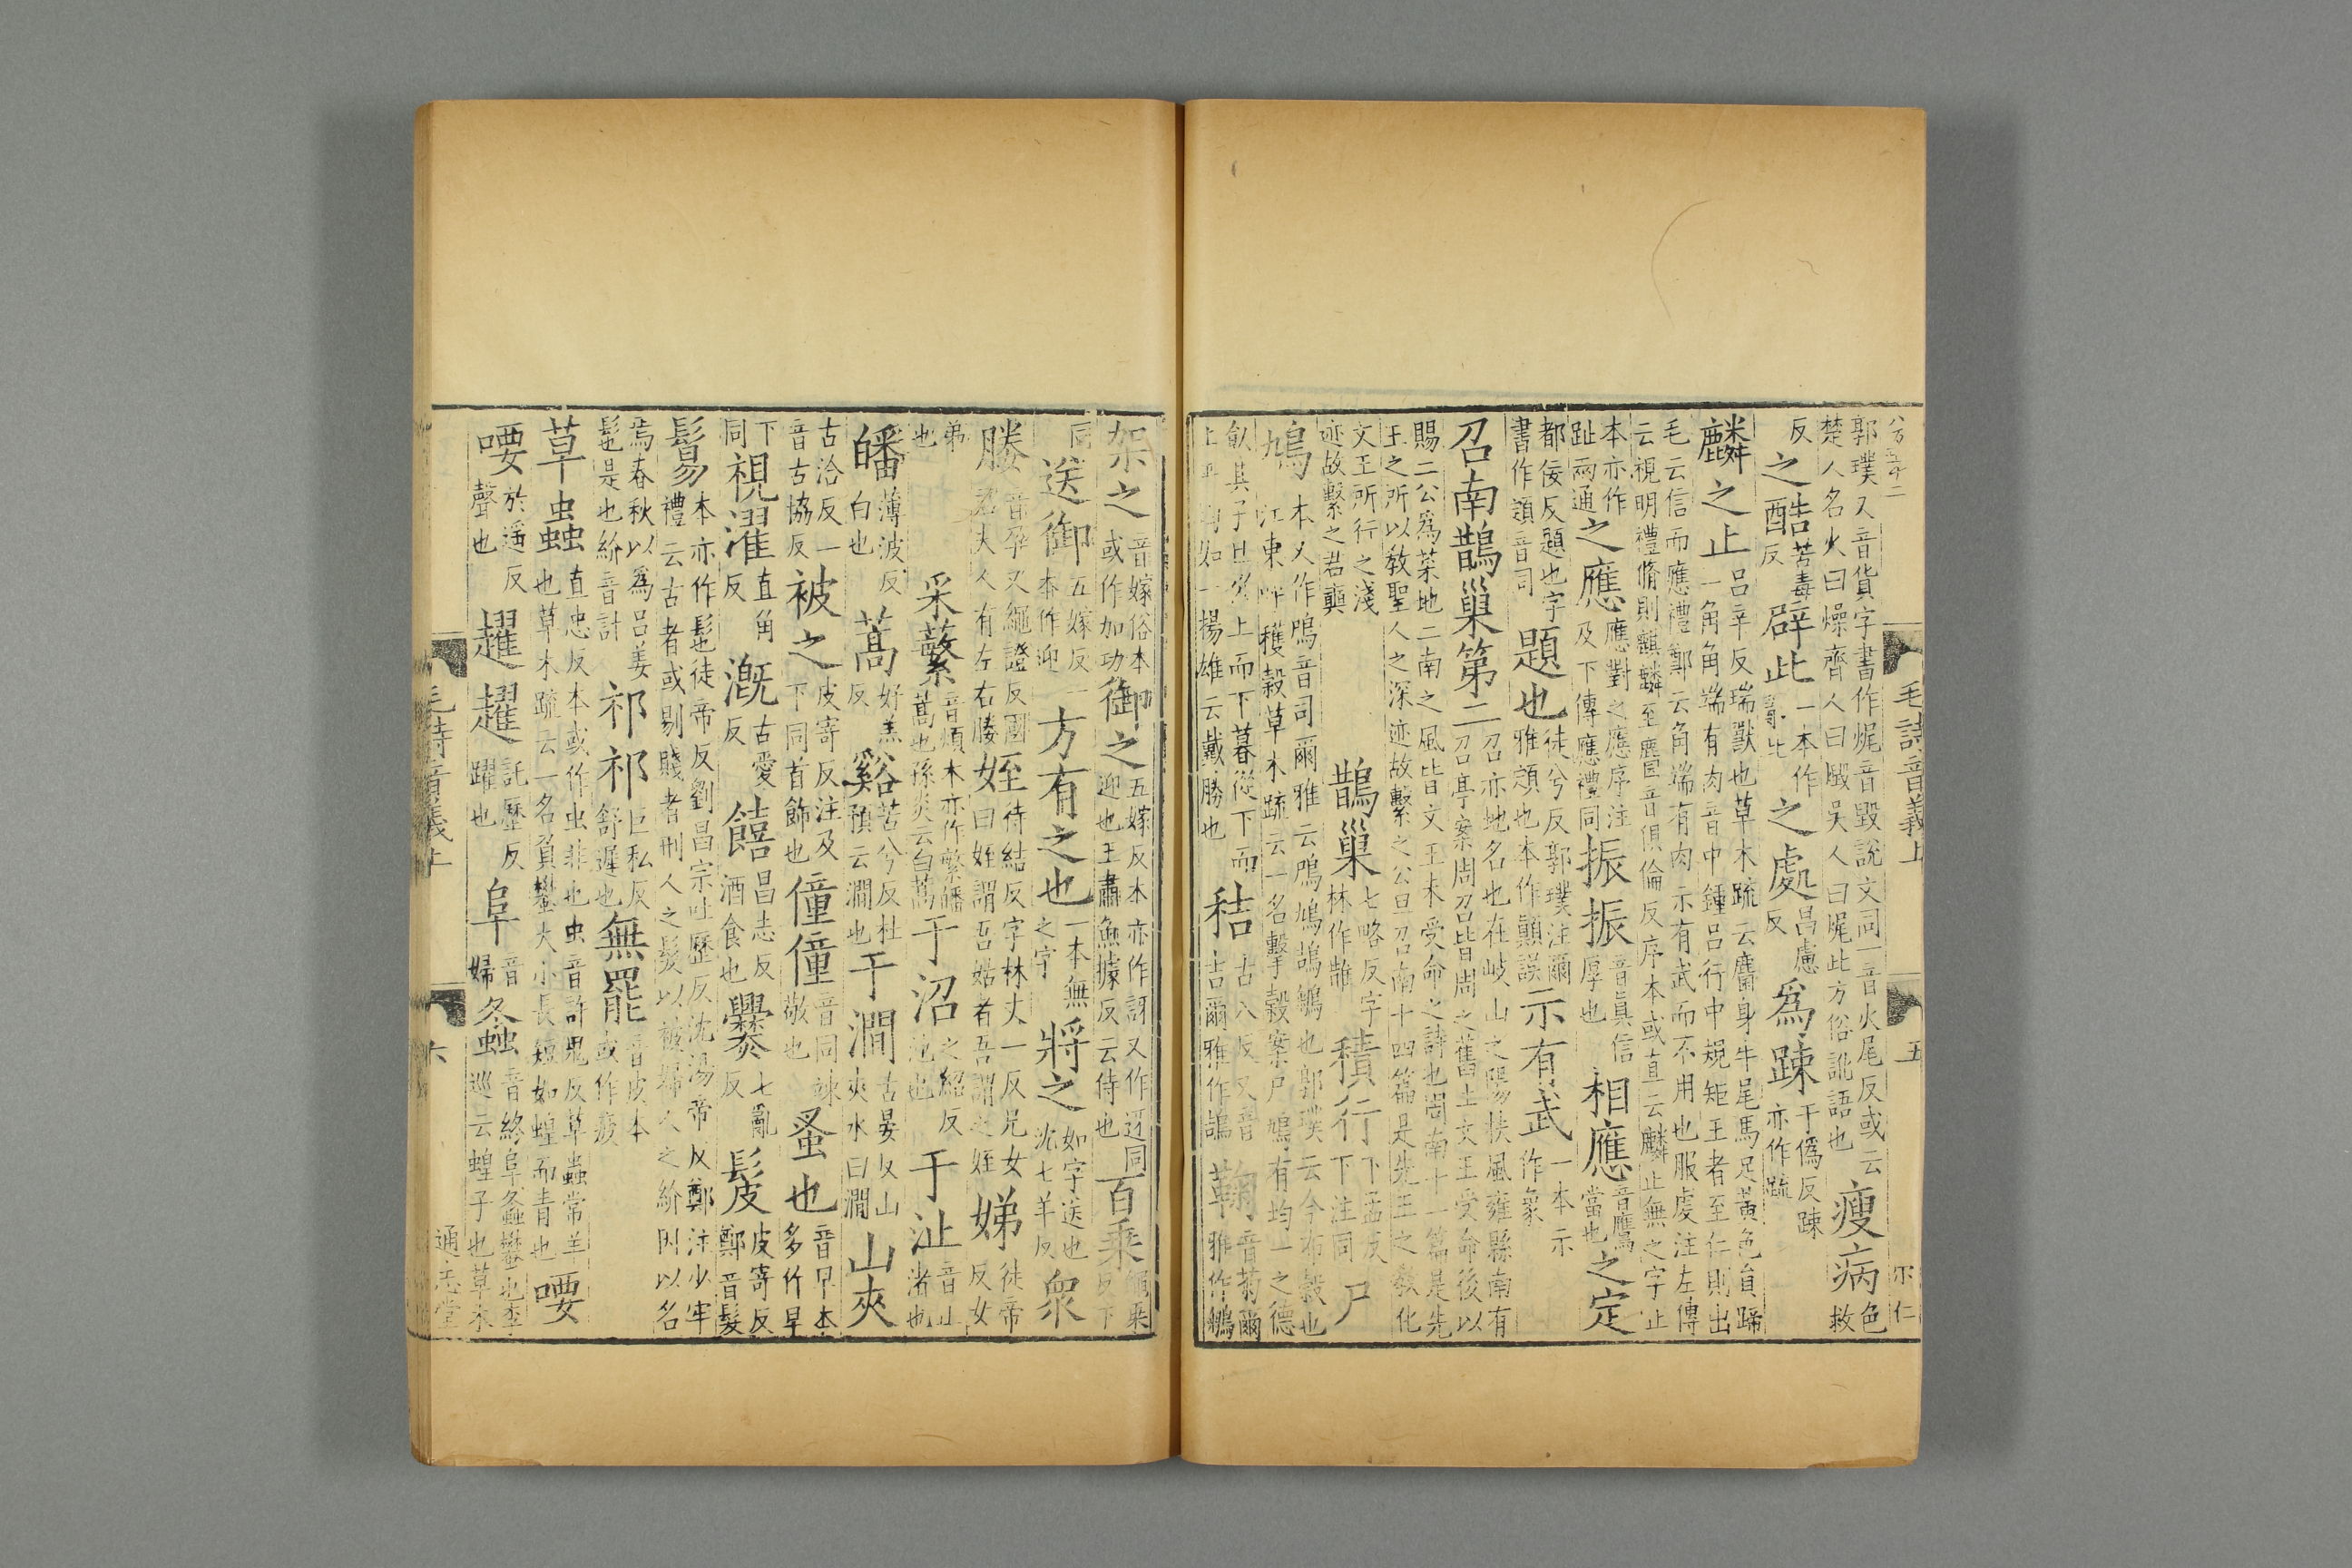 郭璞又音貨字書作㷄音毀說文同一音火尾反或云
楚人名火曰燥齊人曰㷄吳人曰㷄此方俗訛語也
瘦病色救
反之酷苦毒反辟此一本作
之處昌慮反為踈于僞反踈亦作疏
麟之止呂辛反瑞獸也草木疏云麕身牛尾馬足黃色員蹄
一角角端有肉音中鍾呂行中規矩王者至仁則出
毛云信而應禮鄭云角端有肉示有武而不用也服虔注左傳
云視明禮脩則麒麟至麕音俱倫反序本或直云麟止無之字止
本亦作趾兩通之應應對之應序注及下傳應禮同振振音真信厚也相應音膺當也之定
都佞反題也字書作顁音同題也徒兮反郭璞注爾雅頟也本作顛誤示有武一本示作象
召南鵲巢第二召亦地名也在岐山之陽扶風雍縣南有
召亭案周召皆周之舊土文王受命後以
賜二公為菜地二南之風皆文王未受命之詩也周南十一篇是先
王之所以教聖人之深迹故繫之公旦召南十四篇是先王之教化
文王所行之淺迹故繫之君奭
鵲巢七略反字林作䧿積行下孟反下注同尸
鳩本又作鳲音司爾雅云鳲鳩鴶鵴也郭璞云今布穀也
江東呼穫穀草木疏云一名擊穀案尸鳩有均一之德
飤其子旦從上而下暮從下而上平均如一楊雄云戴勝也
秸古八反又音吉爾雅作鴶鞠音菊爾雅作鵴
毛詩音義上 五
架之音嫁俗本或作加功御之五嫁反本亦作訝又作迓同迎也王肅魚據反云侍也百乘繩乘反下
同送御五嫁反一本作迎方有之也一本無之字將之如字送也沈七羊反衆
媵音孕又繩證反國君夫人有左右媵姪待結反字林丈一反兄女曰姪謂吾姑者吾謂之姪娣徒帝反女
弟也采蘩音煩本亦作繁皤蒿也孫炎云白蒿于沼之紹反池也于沚音止渚也
皤薄波反白也蒿好羔反谿苦兮反杜預云澗也于澗古晏反山夾水曰澗山夾
古洽反一音古協反被之皮寄反注及下同首飾也僮僮音同竦敬也蚤也音早本多作早
下同視濯直角反溉古愛反饎昌志反酒食也爨七亂反髲皮寄反鄭音髮
鬄本亦作髢徒帝反劉昌宗吐歷反沈湯帝反鄭注少牢
禮云古者或剔賤者刑人之髮以被婦人之紒因以名
焉春秋以為呂姜髢是也紒音計祁祁巨私反舒遲也無罷音皮本或作疲
草蟲直忠反本或作虫非也虫音許鬼反草蟲常羊
也草木疏云一名負蠜大小長短如蝗而青也喓
喓於遥反聲也趯趯託歷反躍也阜音婦螽音終阜螽蠜也李巡云蝗子也草木
毛詩音義上 六 通志堂